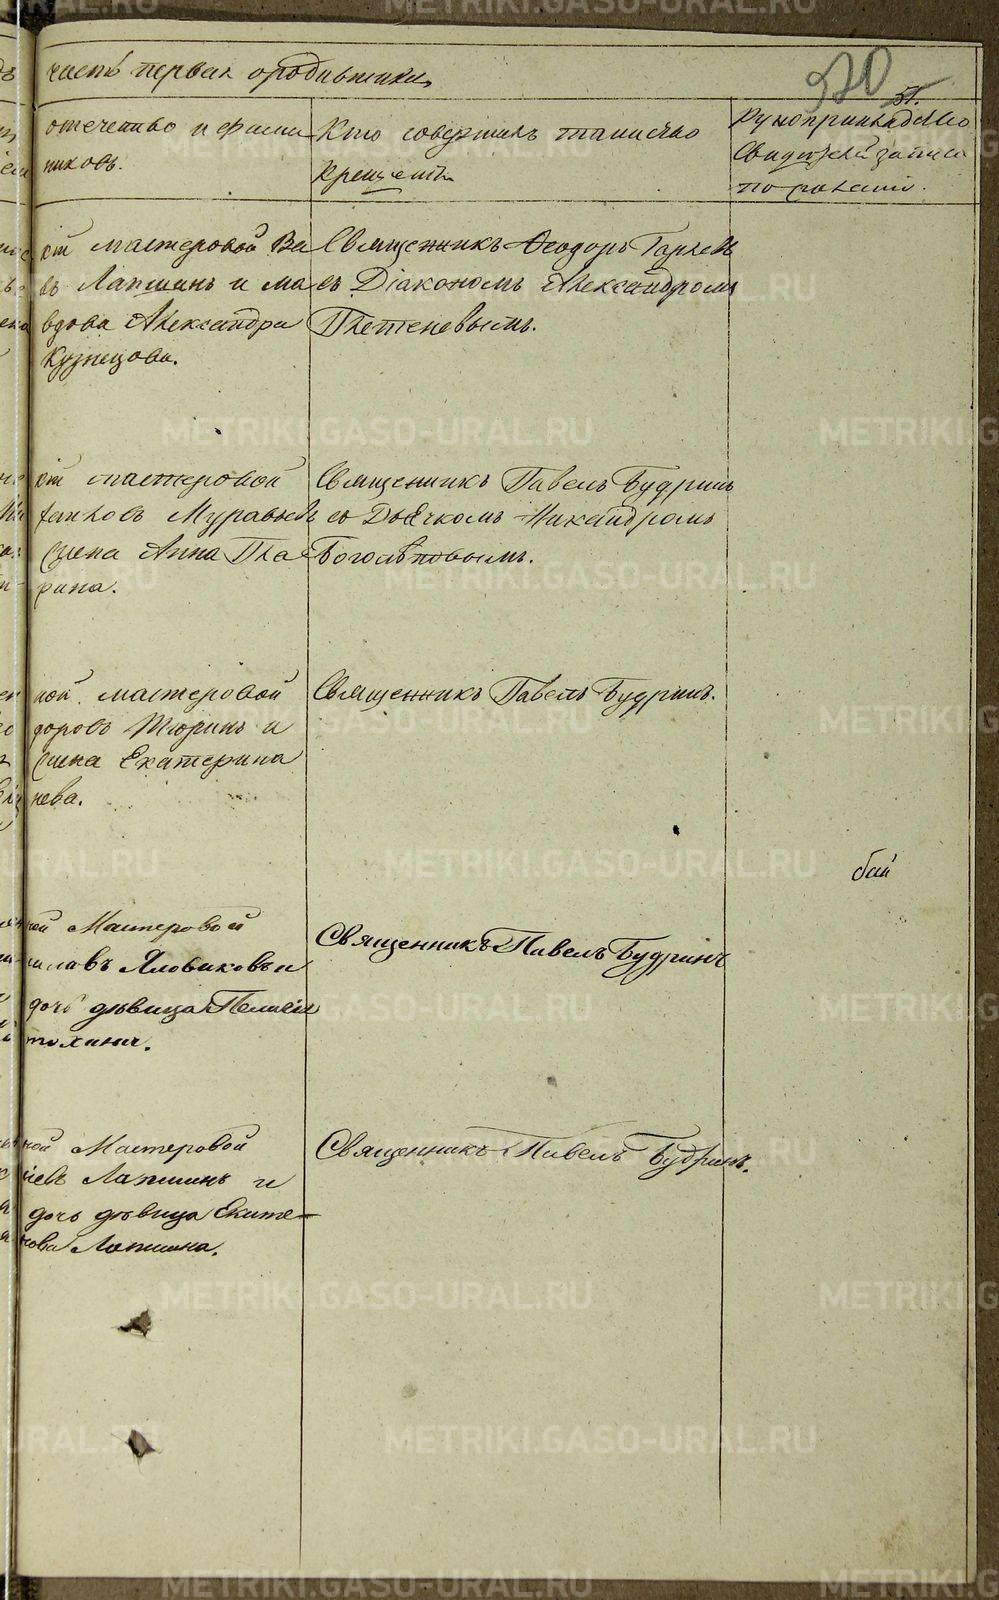 часть первая о родившихся
320
51.
отечество и фамилiя
никовъ.
Кто совершилъ таинство
крещенiя
Рукоприкладство
свидѣтелей записи
по желанiю.
мастеровой Ва
въ Лапшинъ и
вдова Александра
Кузнецова.
Священникъ Ѳеодоръ
съ Дiакономъ Александромъ
Плетеневымъ.
мастеровой
Муравьевъ
жена Анна
рина.
Священникъ Павелъ Будринъ
съ Дьячкомъ Никандромъ
Боголѣповымъ.
ной мастеровой
доровъ Тюринъ и
жена Екатерина
нева.
Священникъ Павелъ Будринъ.
бай
ной Мастеровой
Яловиковъ и
дочь дѣвица Пелагiя
Священникъ Павелъ Будринъ
ной Мастеровой
iевъ Лапшинъ и
дочь дѣвица Екате-
Лапшина.
Священникъ Павелъ Будринъ.
METRIKI.GASO-URAL.RU